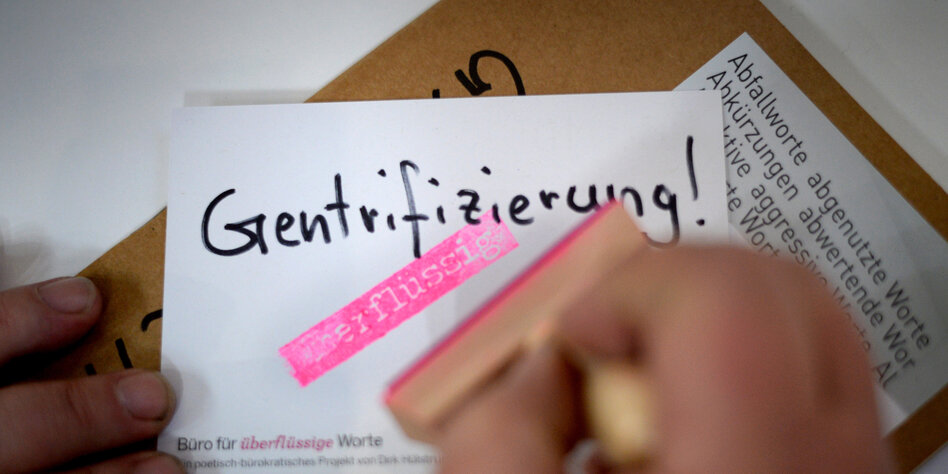 Gentrifizierung!
überflüssig
Büro für überflüssige Worte
Ein poetisch-bürokratisches Projekt von Dirk
Abfallworte abgenutzte Worte
Abkürzungen abwertende Wor
ktive aggressive Worte Al
te Wort